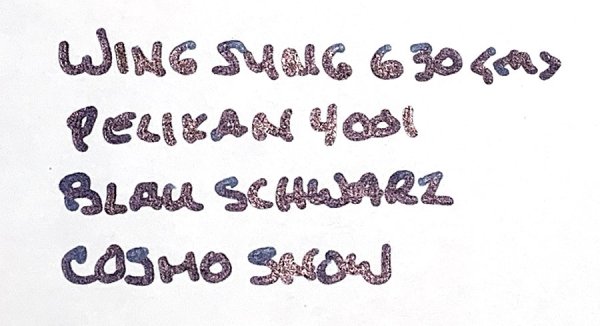 WING SUNG 630 <M>
PELIKAN 4001
BLAU SCHWARZ
COSMO SNOW